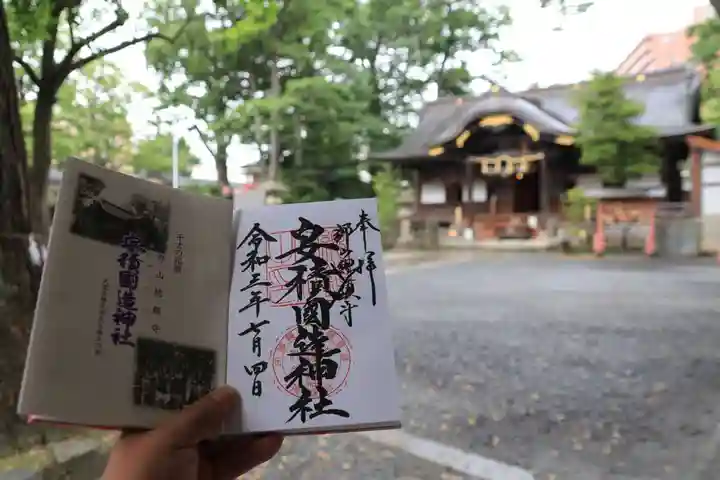 奉拝
郡山総鎮守
安積國造神社
令和三年七月四日
郡山総鎮守
安積國造神社